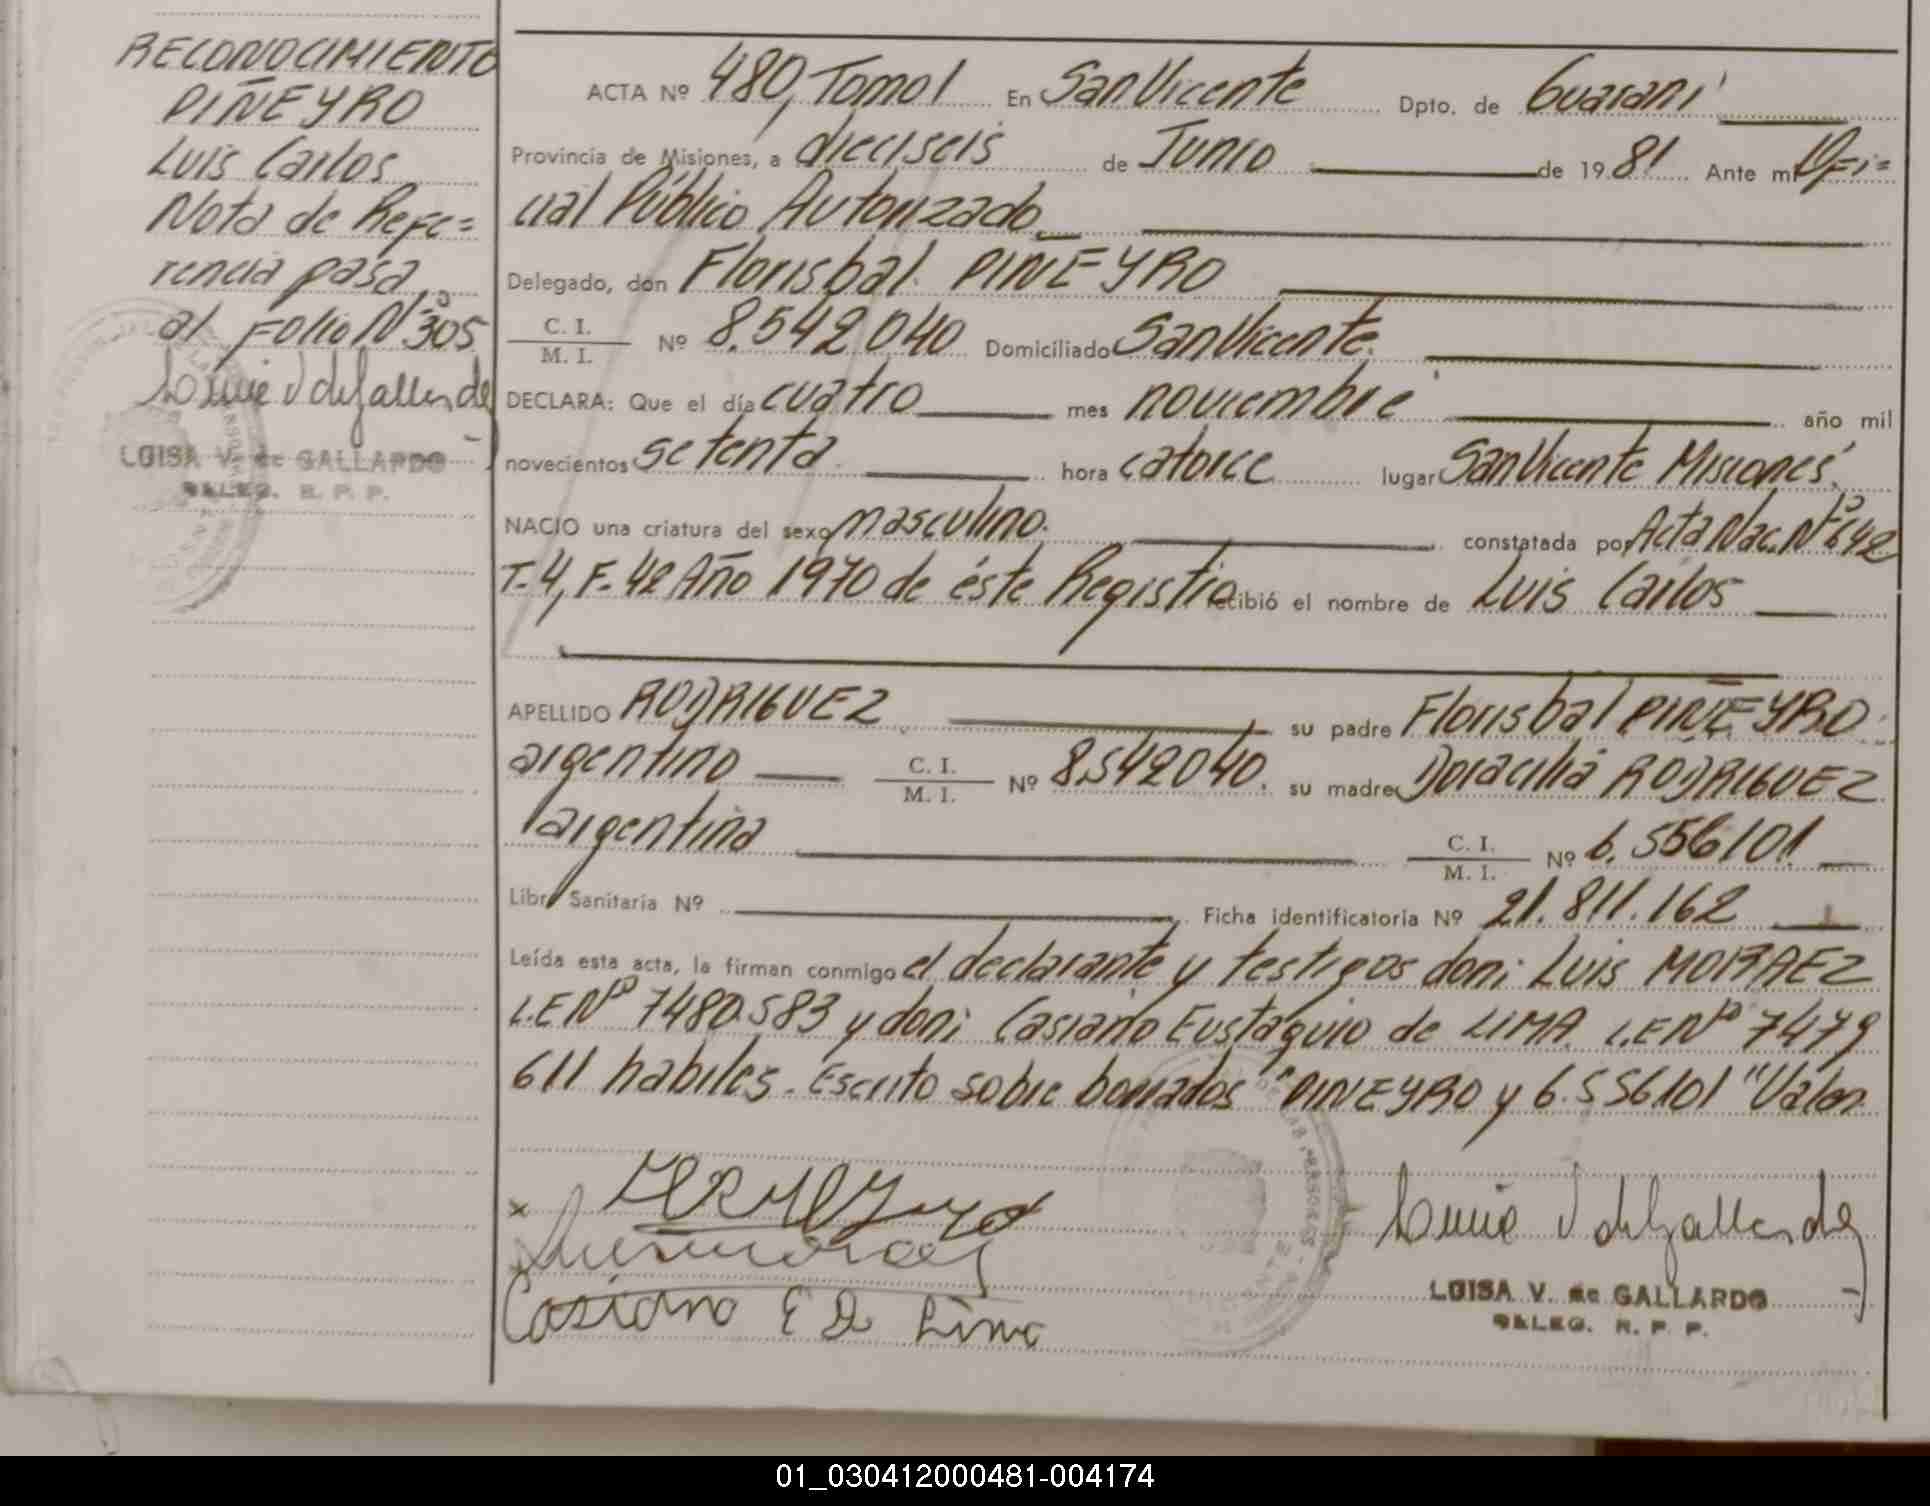 RECONOCIMIENTO
PIÑEYRO
Luis Carlos
Nota de Refe=
rencia pasa
al Folio Nº 305
LUISA V. de GALLARDO
DELEG. R. P. P.
ACTA Nº 480, Tomo 1 En San Vicente Dpto. de Guaraní
Provincia de Misiones, a dieciseis de Junio de 1981 Ante mí Ofi=
cial Público Autorizado
Delegado, don Florisbal PIÑEYRO
C. I.
M. I. Nº 8.542.040 Domiciliado San Vicente.
DECLARA: Que el día cuatro mes noviembre año mil
novecientos setenta hora catorce lugar San Vicente Misiones,
NACIO una criatura del sexo masculino. constatada por Acta Nac. Nº 642
T-4, F-42 Año 1970 de éste Registro recibió el nombre de Luis Carlos
APELLIDO RODRIGUEZ su padre Florisbal PIÑEYRO
argentino C. I.
M. I. Nº 8.542040. su madre Doracilia RODRIGUEZ
argentina C. I.
M. I. Nº 6.556101
Libr. Sanitaria Nº Ficha identificatoria Nº 21.811.162
Leída esta acta, la firman conmigo el declarante y testigos don: Luis MORAEZ
L.E Nº 7480.583 y don: Casiano Eustaquio de LIMA L.E Nº 7479
611 habiles. Escrito sobre borrados "PIÑEYRO y 6.556101" Valen.
Casiano E D Lima
LUISA V. de GALLARDO
DELEG. R. P. P.
01_030412000481-004174